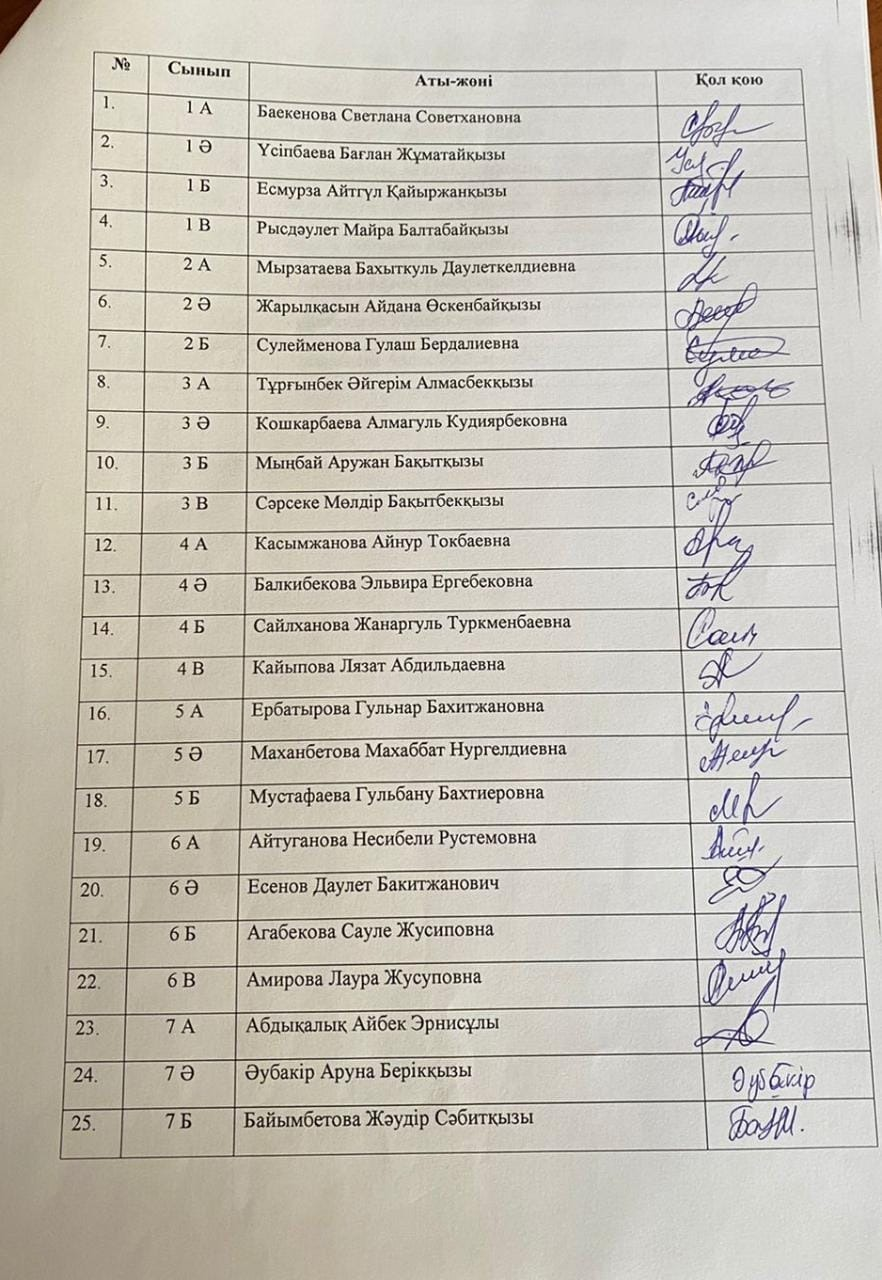 № Сынып Аты-жөні Қол қою
1. 1 А Баекенова Светлана Советхановна
2. 1 Ә Үсіпбаева Бағлан Жұматайқызы
3. 1 Б Есмурза Айтгүл Қайыржанқызы
4. 1 В Рысдәулет Майра Балтабайқызы
5. 2 А Мырзатаева Бахыткуль Даулеткелдиевна
6. 2 Ә Жарылқасын Айдана Өскенбайқызы
7. 2 Б Сулейменова Гулаш Бердалиевна
8. 3 А Тұрғынбек Әйгерім Алмасбекқызы
9. 3 Ә Кошкарбаева Алмагуль Кудиярбековна
10. 3 Б Мыңбай Аружан Бақытқызы
11. 3 В Сәрсеке Мөлдір Бақытбекқызы
12. 4 А Касымжанова Айнур Токбаевна
13. 4 Ә Балкибекова Эльвира Ергебековна
14. 4 Б Сайлханова Жанаргуль Туркменбаевна
15. 4 В Кайыпова Лязат Абдильдаевна
16. 5 А Ербатырова Гульнар Бахитжановна
17. 5 Ә Маханбетова Махаббат Нургелдиевна
18. 5 Б Мустафаева Гульбану Бахтиеровна
19. 6 А Айтуганова Несибели Рустемовна
20. 6 Ә Есенов Даулет Бакитжанович
21. 6 Б Агабекова Сауле Жусиповна
22. 6 В Амирова Лаура Жусуповна
23. 7 А Абдықалық Айбек Эрнисұлы
24. 7 Ә Әубакір Аруна Берікқызы Әубәкір
25. 7 Б Байымбетова Жәудір Сәбитқызы